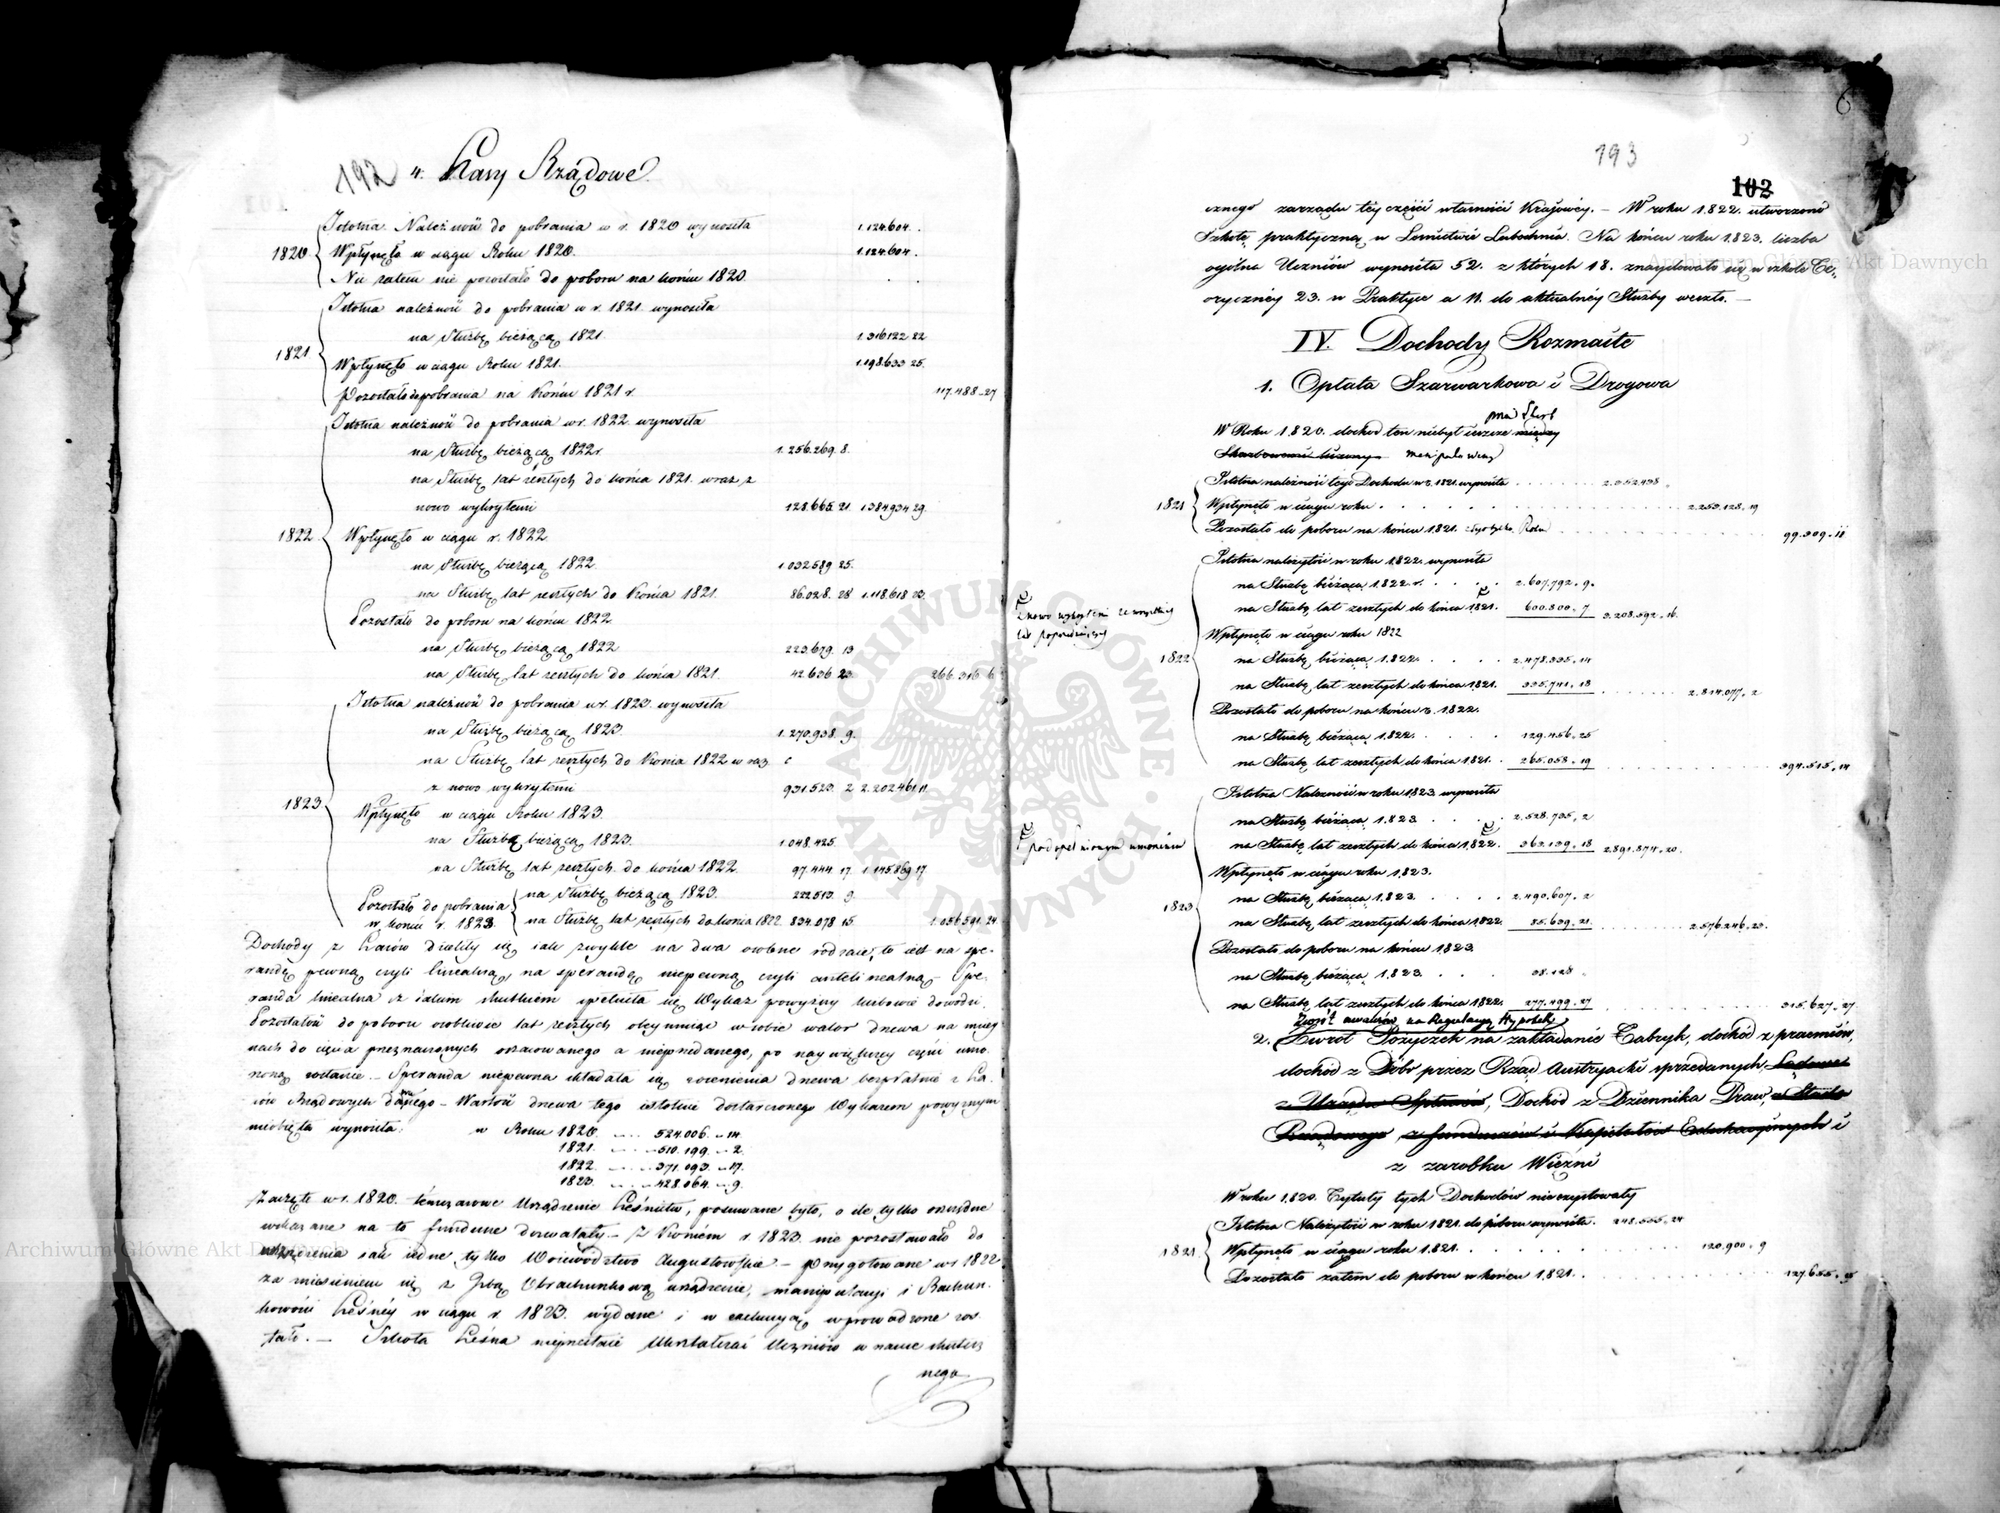 192 4. Lasy Rządowe.
Istotna Należność do pobrania w r. 1820 wynosiła 1.124.604. .
1820. Wpłynęło w ciągu Roku 1820. 1.124.604. .
Nic zatem nie pozostało do poboru na końcu 1820. . .
Istotna należność do pobrania w r. 1821. wynosiła
na Służbę bieżącą 1821. 1.316122 22
1821 Wpłynęło w ciągu Roku 1821. 1.198.633 25.
Pozostało do pobrania na końcu 1821 r. 117.488-27
Istotna należność do pobrania w r. 1822. wynosiła
na Służbę bieżącą 1822r. 1.256.269. 8.
na Służbę lat zeszłych do końca 1821. wraz z
nowo wykrytemi 128.665. 21. 1.384934 29.
1822 Wpłynęło w ciągu r. 1822.
na Służbę bieżącą 1822. 1.032.589. 25.
na Służbę lat zeszłych do Końca 1821. 86.028. 28 1.118.618 23.
Pozostało do poboru na końcu 1822
na Służbę bieżącą 1822 223.679. 13
na Służbę lat zeszłych do końca 1821. 42.636 23 266.316 6
Istotna należność do pobrania w r. 1823. wynosiła
na Służbę bieżącą 1823. 1.270.938. 9.
na Służbę lat zeszłych do Końca 1822 wraz
z nowo wykrytemi 931.523. 2 2.202461.11
1823 Wpłynęło w ciągu Roku 1823.
na Służbę bieżącą 1823. 1.048.425.
na Służbę lat zeszłych do końca 1822. 97.444. 17. 1.145.869 17
Pozostało do pobrania na Służbę bieżącą 1823. 222.513. 9.
w końcu r. 1823. na Służbę lat zeszłych do końca 1822. 834.078 15. 1.056.591.24
Dochody z Lasów dzieliły się, jak zwykle na dwa osobne rodzaje, to jest na spe-
randę pewną czyli linealną, na sperandę niepewną czyli antelinealną. Spe-
randa linealna z całym skutkiem spełniła się, Wykaz powyższy liczbowie dowodzi.
Pozostałość do poboru osobliwie lat zeszłych obejmuje w sobie walor drzewa na miej-
scach do cięcia przeznaczonych oszacowanego a niesprzedanego, po największej części umo-
rzoną zostanie. Speranda niepewna składała się z ocenienia drzewa bezpłatnie z La-
sów Rządowych danego - Wartość drzewa tego istotnie dostarczonego Wykazem powyższym
nieobjęta wynosiła: w Roku 1820. 524.006. 14.
1821. 510.199. 2.
1822. 371.093. 17.
1823. 428.064. 9.
Zaczęte w r. 1820. tymczasowe Urządzenie Leśnictw, posuwane było, o ile tylko oszczędne
wskazane na to fundusze dozwalały. Z Końcem r. 1823 nie pozostawało do
urządzenia jak jedno tylko Województwo Augustowskie - Przygotowane w r 1822
za zniesieniem się z Izbą Obrachunkową urządzenie, manipulacyi i Rachun-
kowości Leśnéy w ciągu r. 1823. wydane i w exekucyą wprowadzone zos-
tało. - Szkoła Leśna nieprzestaie Uksztalcać Uczniów w nauce skutecz
nego
193
102
6
cznego zarządu téy części własności Krajowéy. - W roku 1.822. utworzono
Szkołę praktyczną w Leśnictwie Lubochnia. Na końcu roku 1.823. liczba
ogólna Uczniów wynosiła 52. z których 18. znaydowało się w szkole Te-
oryczney 23. w Praktyce a 11. do aktualnéy Służby weszło. -
IV. Dochody Rozmaite
1. Opłata Szarwarkowa i Drogowa
przez Skarb
W Roku 1.820. dochod ten niebył ieszcze między
Skarbowemi liczony manipulowany
Istotna należność tego Dochodu w r. 1821. wynosiła 2.352.438
1821 Wpłynęło w ciągu roku 2.253.128. 19
Pozostało do poboru na końcu 1.821. 99.309. 11
Istotna należytość w roku 1.822. wynosiła
na Służbę bieżącą 1.822. r. 2.607.792. 9.
na Służbę lat zeszłych do końca 1.821. 600.800. 7 3.208.592. 16.
z nowo wykrytemi ze wszystkich
lat poprzednich
Wpłynęło w ciągu roku 1822
1822 na Służbę bieżącą 1.822. 2.478.335. 14
na Służbę lat zeszłych do końca 1.821. 335.741. 18 2.814.077. 2
Pozostało do poboru na końcu r. 1.822.
na Służbę bieżącą 1.822. 129.456. 25
na Służbę lat zeszłych do końca 1.821. 265.058. 19 394.515. 14
Istotna Należność w roku 1.823. wynosiła
na Służbę bieżącą 1.823 2.528.735. 2
na Służbę lat zeszłych do końca 1,822. 363.139. 18 2.891.874. 20.
Wpłynęło w ciągu roku 1.823.
1823 na Służbę bieżącą 1.823. 2.490.607. 2
na Służbę lat zeszłych do końca 1.822. 85.639. 21 2.576.246. 23.
Pozostało do poboru na końcu 1.823.
na Służbę bieżącą 1.823. 38.128
na Służbę lat zeszłych do końca 1.822. 277.499. 27 315.627. 27.
Zwrót awansów na Regulacyą Hypotek
2. Zwrot Pożyczek na zakładanie Fabryk, dochód z
dochód z Dóbr przez Rząd Austryacki sprzedanych, Sądowe
z Urzędu, Dochód z Dziennika Praw, z Stada
Rządowego, z funduszów i Kapitałów Edukacyinych i
z zarobku Więźni
W roku 1.820. Tytuły tych Dochodów nieexystowały
Istotna Należytość w roku 1.821. do poboru wynosiła. 248.555. 24
1821 Wpłynęło w ciągu roku 1.821. 120.900. 9
Pozostało zatem do poboru w końcu 1.821. 127.655. 15
ARCHIWUM GŁÓWNE AKT DAWNYCH
Archiwum Główne Akt Dawnych
Archiwum Główne Akt Dawnych